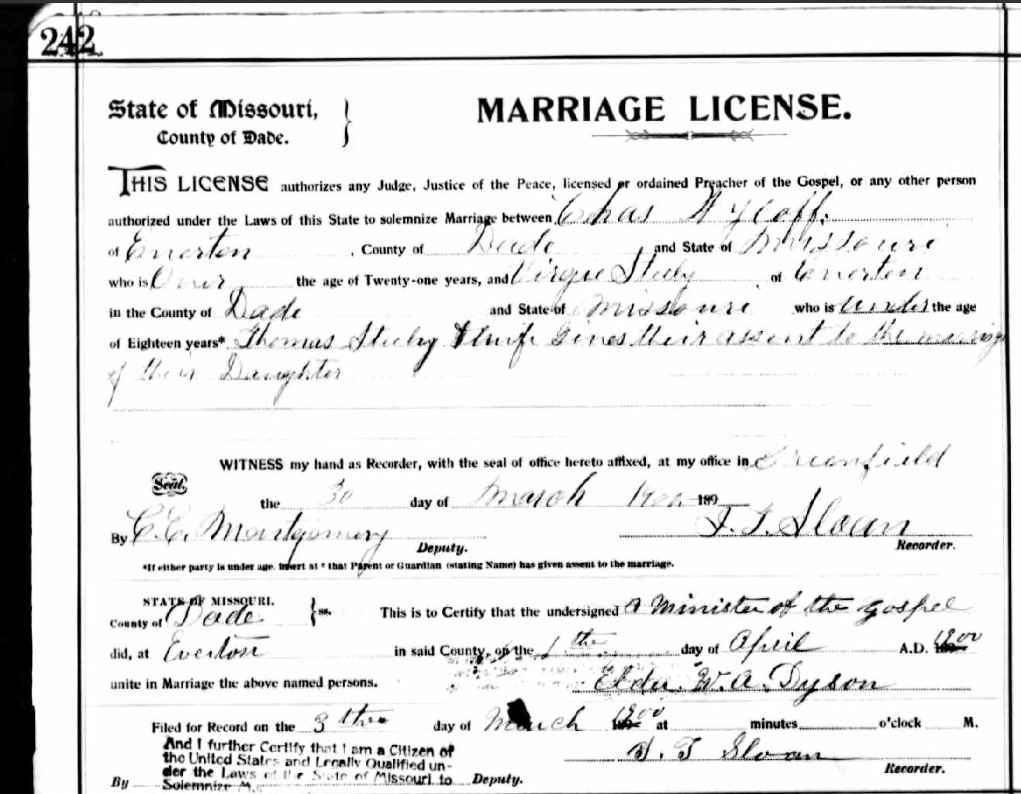 242
State of Missouri,
County of Dade.
MARRIAGE LICENSE.
THIS LICENSE authorizes any Judge, Justice of the Peace, licensed or ordained Preacher of the Gospel, or any other person
authorized under the Laws of this State to solemnize Marriage between Chas Wycoff.
of Everton, County of Dade, and State of Missouri
who is Over the age of Twenty-one years, and Virgie Steely of Everton
in the County of Dade and State of Missouri who is under the age
of Eighteen years* Thomas Steely & wife Gives their assent to the marriage
of their Daughter
WITNESS my hand as Recorder, with the seal of office hereto affixed, at my office in Greenfield
Seal.
the 30 day of March 1900 189
By C.E. Montgomery Deputy. Sloan Recorder.
*If either party is under age, insert at * that Parent or Guardian (stating Name) has given assent to the marriage.
STATE OF MISSOURI.
County of Dade ss. This is to Certify that the undersigned a Minister of the gospel
did, at Everton in said County, on the 1th day of April A.D. 1900
unite in Marriage the above named persons. W. A. Dyson
Filed for Record on the 3 day of March 1900 at minutes o'clock M.
And I further Certify that I am a Citizen of
the United States and Legally Qualified un-
der the Laws of the State of Missouri to
Solemnize M.
Sloan
By Deputy. Recorder.